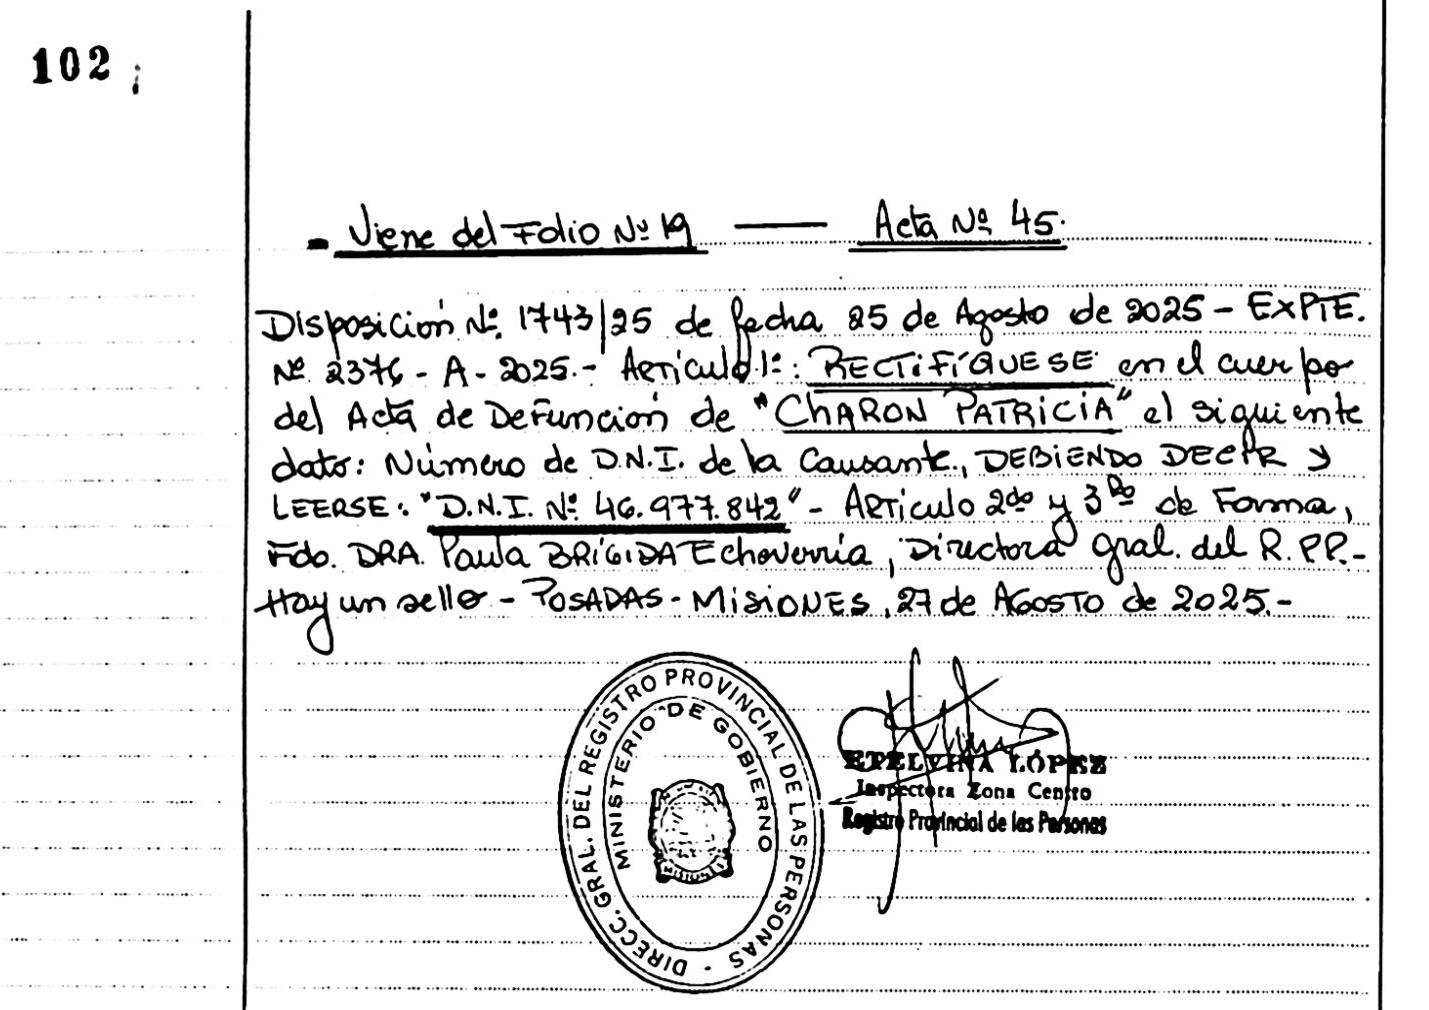 102
- Viene del Folio Nº 19 — Acta Nº 45.
Disposición Nº 1743/25 de fecha 25 de Agosto de 2025 - EXPTE.
Nº 2376 - A - 2025.- Artículo 1º: RECTIFÍQUESE en el cuerpo
del Acta de Defunción de "CHARON PATRICIA" el siguiente
dato: Número de D.N.I. de la Causante, DEBIENDO DECIR y
LEERSE: "D.N.I. Nº 46.977.842" - Artículo 2do y 3ro de Forma,
Fdo. DRA. Paula BRÍGIDA Echeverría, Directora Gral. del R.P.P.-
Hay un sello - POSADAS - MISIONES, 27 de AGOSTO de 2025.-
DIRECC. GRAL. DEL REGISTRO PROVINCIAL DE LAS PERSONAS -
MINISTERIO DE GOBIERNO
MISIONES
ETELVINA LÓPEZ
Inspectora Zona Centro
Registro Provincial de las Personas